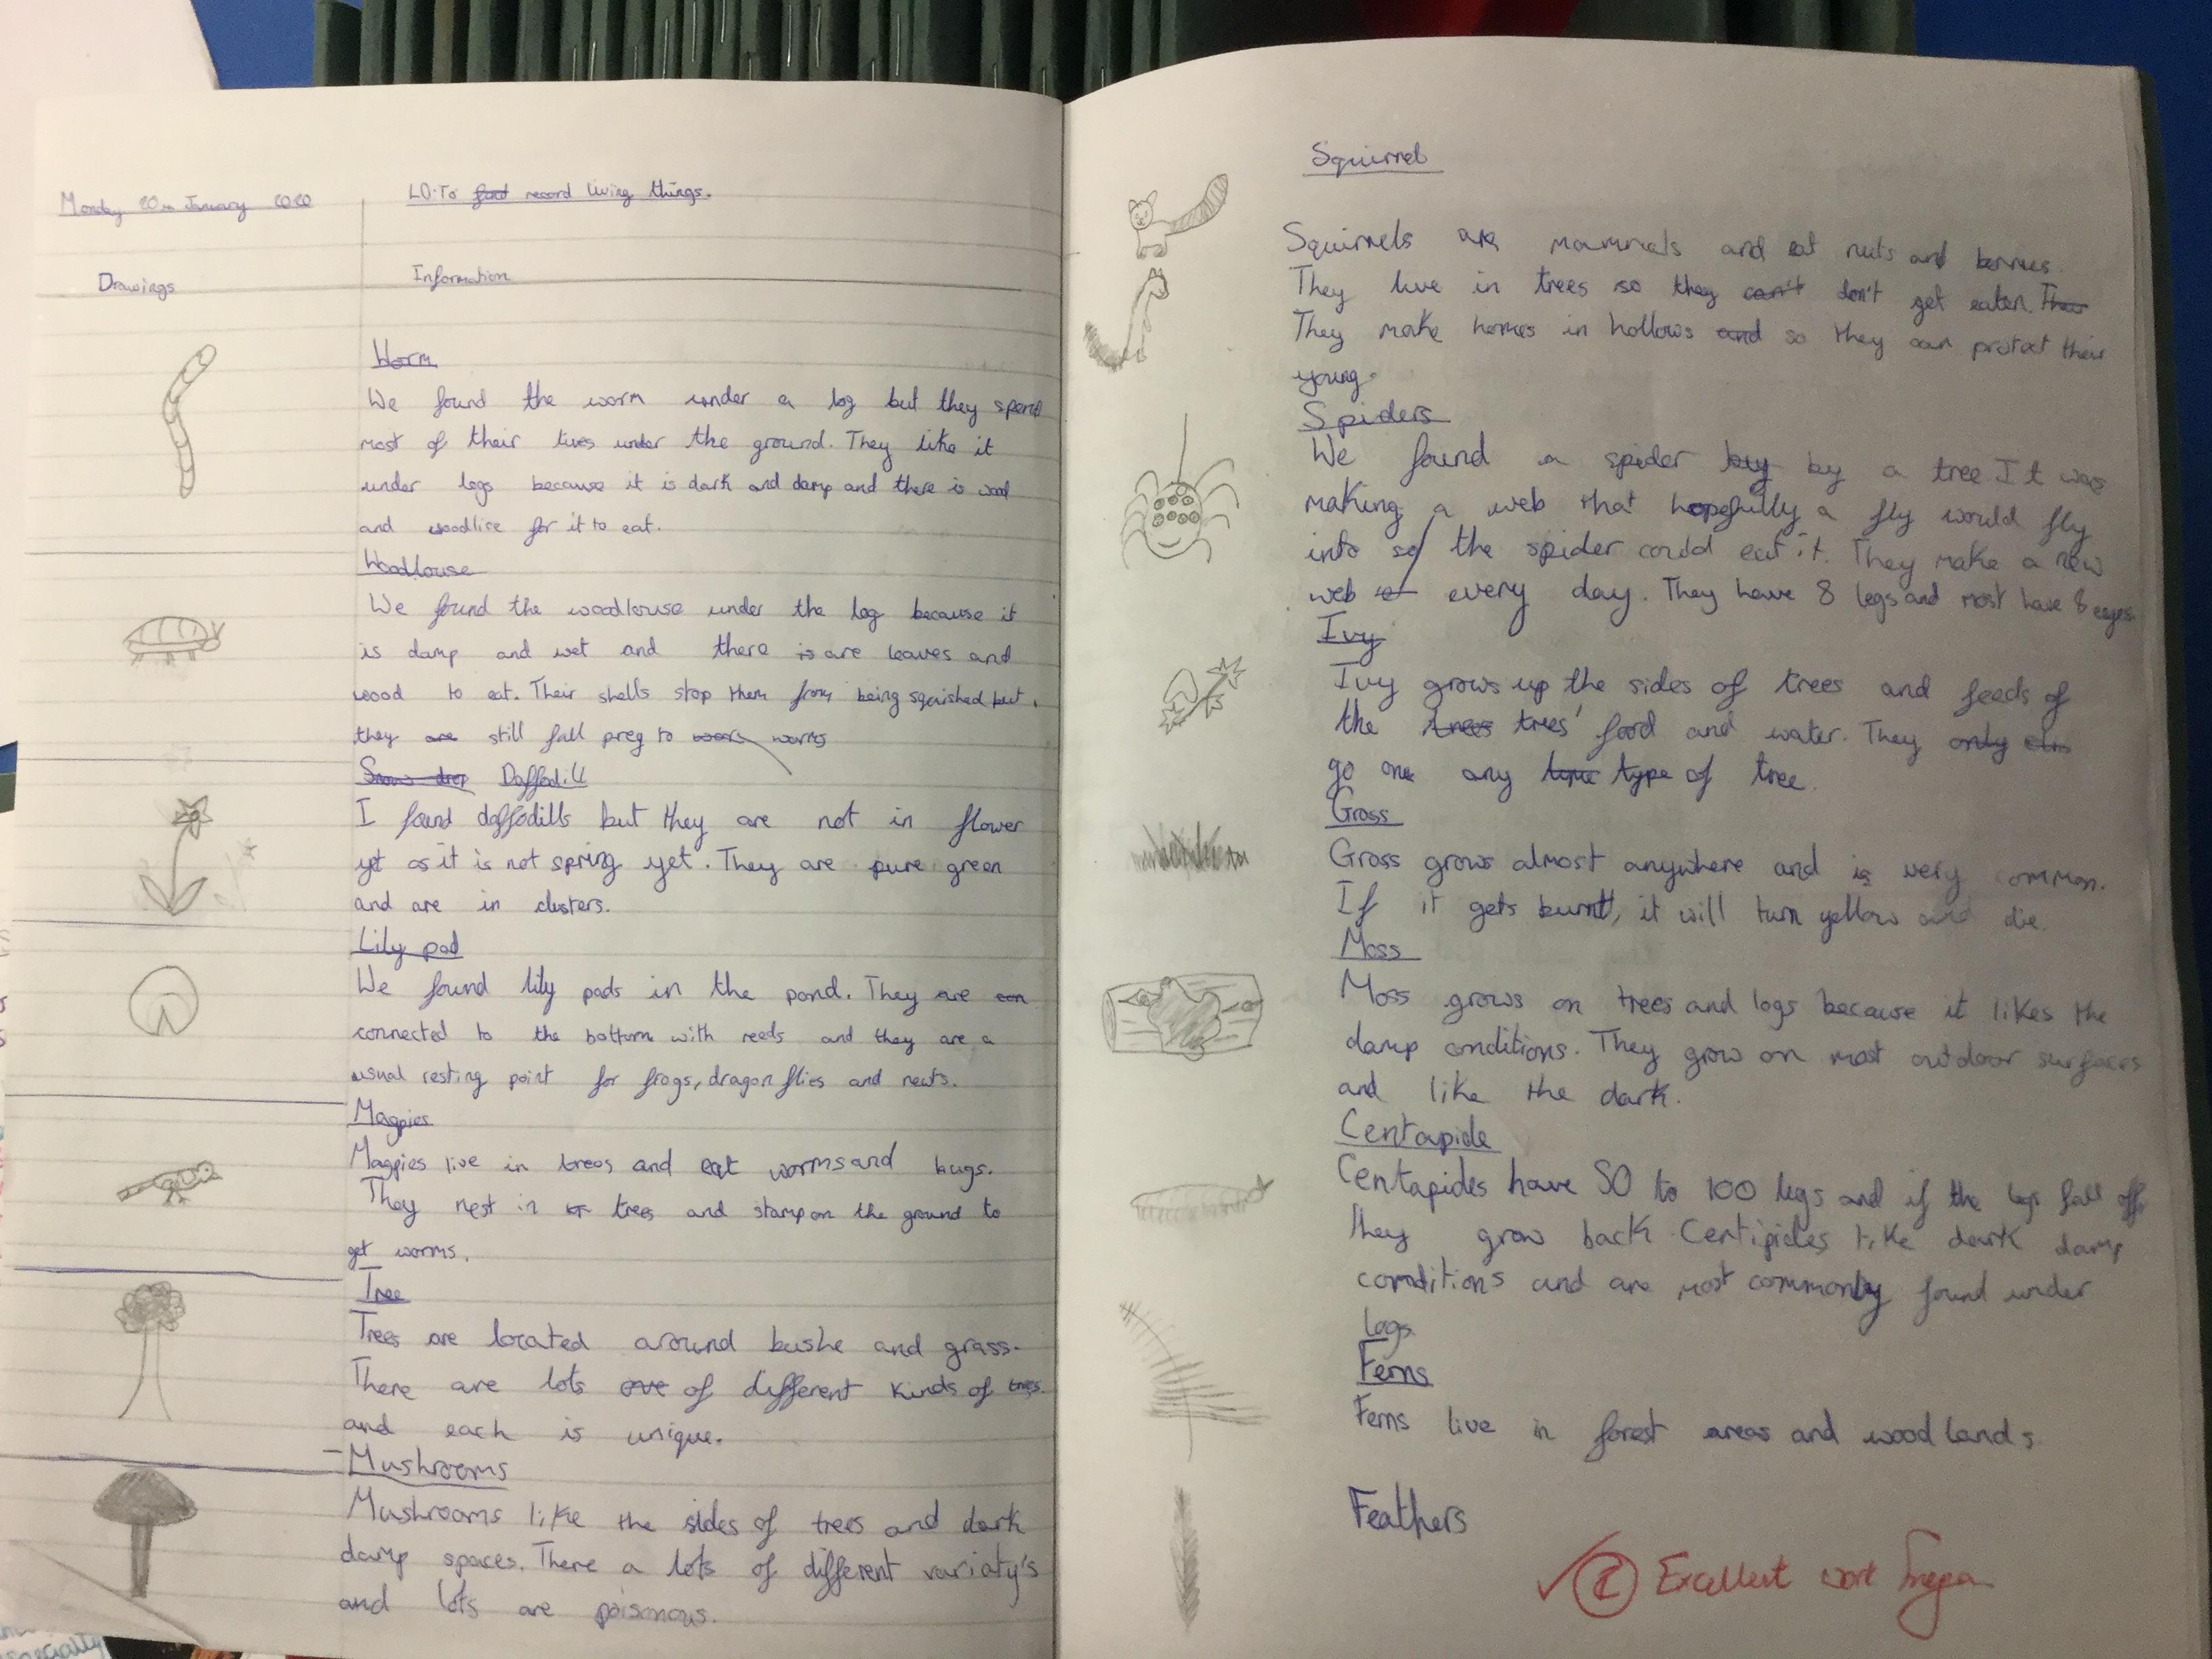 Monday 20th January 2020
LO: To find record living things.
Drawings
Information
Worm
We found the worm under a log but they spend
most of their lives under the ground. They like it
under logs because it is dark and damp and there is wood
and woodlice for it to eat.
Woodlouse
We found the woodlouse under the log because it
is damp and wet and there is are leaves and
wood to eat. Their shells stop them from being squished but
they are still fall prey to worms
Snow drop Daffodill
I found daffodills but they are not in flower
yet as it is not spring yet. They are pure green
and are in clusters.
Lily pad
We found lily pads in the pond. They are con
connected to the bottom with reeds and they are a
usual resting point for frogs, dragon flies and newts.
Magpies
Magpies live in trees and eat worms and bugs.
They nest in trees and stamp on the ground to
get worms.
Tree
Trees are located around bushe and grass.
There are lots ove of different kinds of trees
and each is unique.
Mushrooms
Mushrooms like the sides of trees and dark
damp spaces. There a lots of different variaty's
and lots are poisonous.
Squirrel
Squirrels are mammals and eat nuts and berries.
They live in trees so they can't don't get eaten. Their
They make homes in hollows and so they can protect their
young.
Spiders
We found a spider buy by a tree It was
making a web that hopefully a fly would fly
into so the spider could eat it. They make a new
web every day. They have 8 legs and most have 8 eyes
Ivy
Ivy grows up the sides of trees and feeds of
the trees trees' food and water. They only
go one any type of tree.
Grass
Grass grows almost anywhere and is very common.
If it gets burnt, it will turn yellow and die.
Moss
Moss grows on trees and logs because it likes the
damp conditions. They grow on most outdoor surfaces
and like the dark.
Centapide
Centapides have 50 to 100 legs and if the legs fall off
they grow back. Centipides like dark damp
conditions and are most commonly found under
logs
Ferns
Ferns live in forest areas and wood lands
Feathers
Excellent work
specially